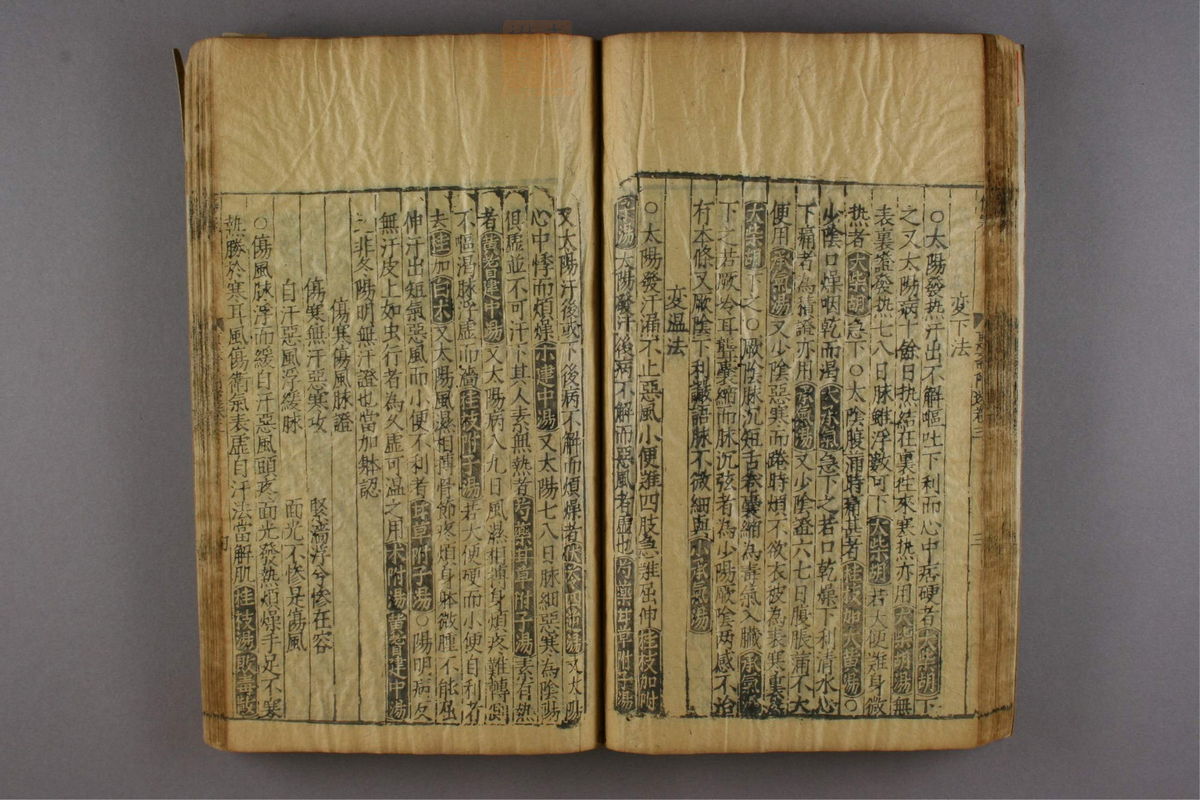 変下法
○太陽發热汗出不解嘔吐下利而心中痞硬者大柴胡下
之又太陽病十餘日热結在裏徃來寒热亦用大柴胡湯無
表裏證發热七八日脉雖浮數可下大柴胡若大便難身微
热者大柴胡急下○太陰腹滿時痛甚者桂枝加大黄湯○
少陰口燥咽乾而渴大承氣急下之若口乾燥下利清水心
下痛者為積證亦用承氣湯又少陰證六七日腹脹滿不大
便用承氣湯又少陰惡寒而踡時煩不欲衣被為表寒裏
大柴胡下之○厥陰脉沉短舌卷囊縮為毒氣入臟承氣
下之若厥冷耳聾囊縮而脉沉弦者為少陽厥陰两感不治
有本條又厥陰下利譫語脉不微細與小承氣湯
変温法
○太陽發汗漏不止惡風小便難四肢急難屈伸桂枝加附
子湯太陽發汗後病不解而惡風者虚也芍藥甘草附子湯
又太陽汗後或下後病不解而煩燥者茯苓四逆湯又太陽
心中悸而煩燥小建中湯又太陽七八日脉細惡寒為陰陽
俱虚並不可汗下其人素無熱者芍藥甘草附子湯素有热
者黄耆建中湯又太陽病八九日風濕相摶身煩疼難轉側
不嘔渴脉浮虚而濇桂枝附子湯若大便硬而小便自利者
去桂加白朮又太陽風濕相摶骨節疼煩身躰微腫不能屈
伸汗出短氣惡風而小便不利者甘草附子湯○陽明病反
無汗皮上如虫行者為久虚可温之用朮附湯黄耆建中湯
三非冬陽明無汗證也當加躰認
傷寒傷風脉證
傷寒無汗惡寒攻 緊濇浮兮惨在容
自汗惡風浮緩脉 面光不惨是傷風
○傷風脉浮而緩自汗惡風頭疼面光發熱煩燥手足不寒
熱勝於寒耳風傷衛氣表虚自汗法當解肌桂枝湯敗毒散